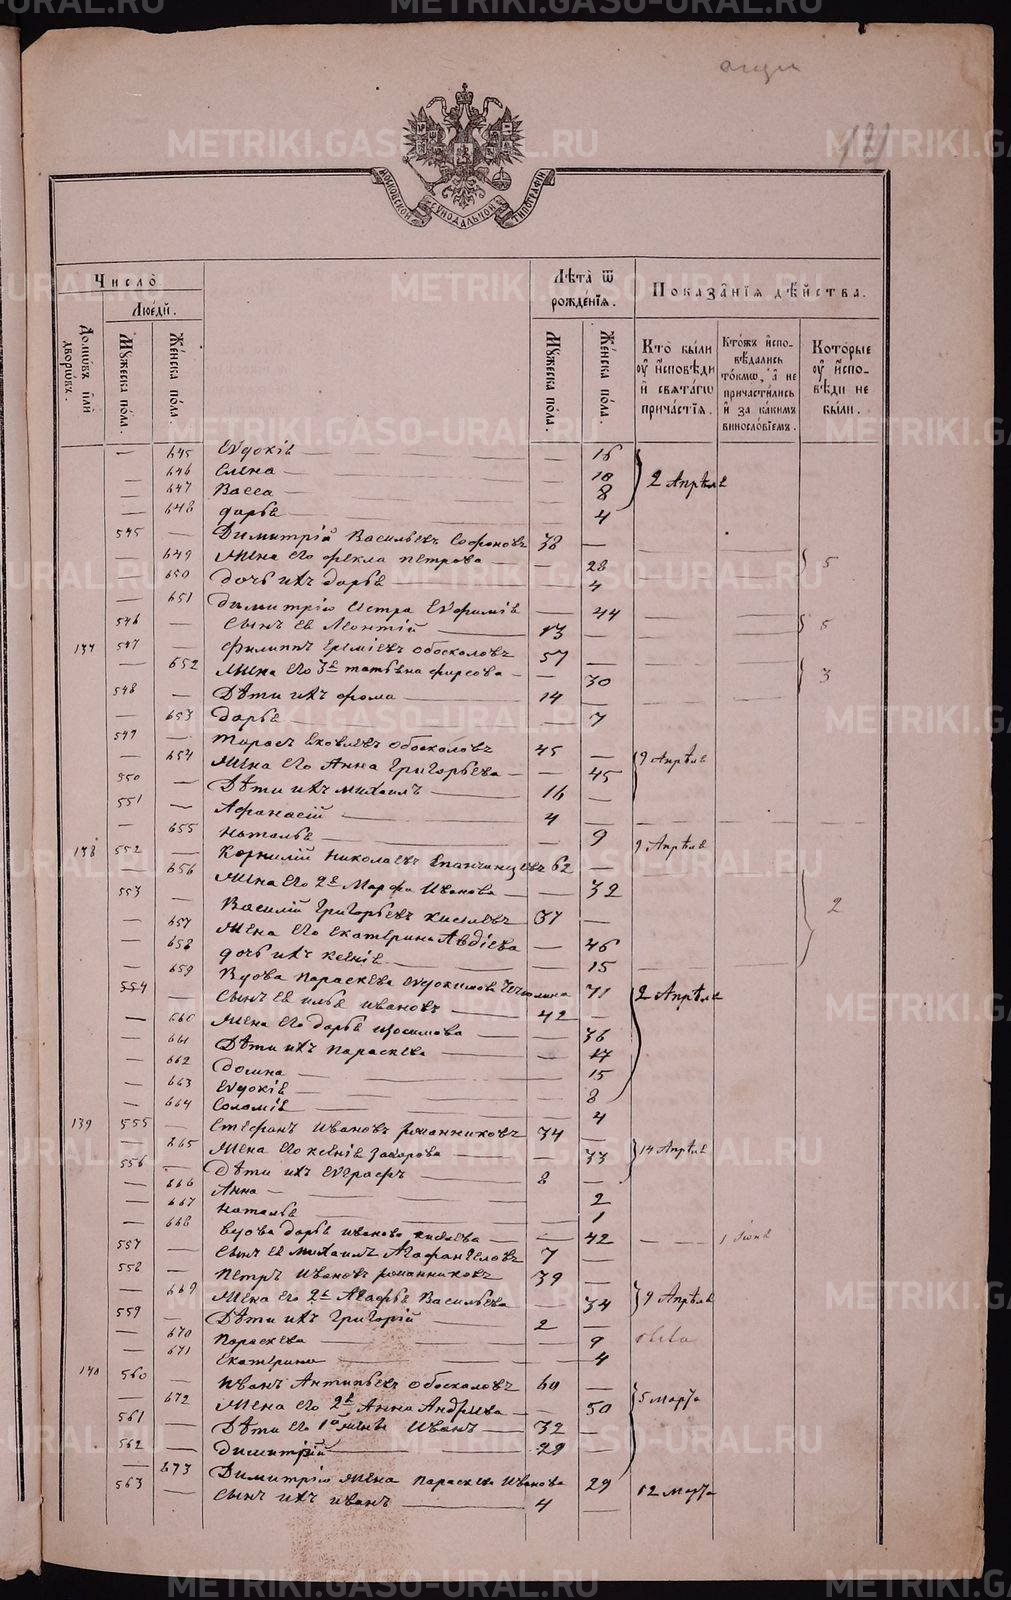 METRIKI.GASO-URAL.RU
МОСКОВСКОЙ СѴНОДАЛЬНОЙ ТИПОГРАФІИ
Число
Людей.
Домовъ или дворовъ.
Мужеска пола.
Женска пола.
Лѣта ѿ рожденія.
Мужеска пола.
Женска пола.
Показанія дѣйства.
Кто были оу исповѣди и свѧтагѡ причастіѧ.
Ктожъ исповѣдались токмѡ, а не причастились и за какимъ винословіемъ.
Которые оу исповѣди не были.
— 645 Евдокія — 16
— 646 Елена — 10 2 Апрѣля
— 647 Васса — 8
— 648 Дарья — 4
545 — Димитрій Васильевъ Софоновъ 38 —
— 649 Жена его Фекла Петрова — 28 5
— 650 Дочь ихъ Дарья — 4
— 651 Димитрія сестра Евфимія — 44
546 — Сынъ ея Леонтій 13 — 5
137 547 — Филиппъ Обоскаловъ 57 —
— 652 Жена его 3я Татьяна Фирсова — 30 3
548 — Дѣти ихъ Фома 14 —
— 653 Дарья — 7
549 — Тарасъ Яковлевъ Обоскаловъ 45 —
— 654 Жена его Анна Григорьева — 45 9 Апрѣля
550 — Дѣти ихъ Михаилъ 16 —
551 — Афанасій 4 —
— 655 Наталья — 9
138 552 — Корнилій Николаевъ Епанчинцевъ 62 9 Апрѣля
— 656 Жена его 2я Марфа Иванова — 32
553 — Василій Григорьевъ Киселевъ 37 — 2
— 657 Жена его Екатерина Авдіева — 46
— 658 Дочь ихъ Ксенія — 15
— 659 Вдова Параскева Евдокимова — 71 2 Апрѣля
554 — Сынъ ея Илья Ивановъ 42 —
— 660 Жена его Дарья Зосимова — 36
— 661 Дѣти ихъ Параскева — 17
— 662 Домна — 15
— 663 Евдокія — 8
— 664 Соломія — 4
139 555 — Стефанъ Ивановъ Романниковъ 34 —
— 665 Жена его Ксенія Захарова — 33 14 Апрѣля
556 — Дѣти ихъ Евграфъ 8 —
— 666 Анна — 2
— 667 Наталья — 1
— 668 Вдова Дарья Иванова Киселева — 42 — 1 Іюня
557 — Сынъ ея Михаилъ Агафангеловъ 7 —
558 — Петръ Ивановъ Романниковъ 39 —
— 669 Жена его 2я Агафья Васильева — 34 9 Апрѣля
559 — Дѣти ихъ Григорій 2 —
— 670 Параскева — 9
— 671 Екатерина — 4
140 560 — Иванъ Антипьевъ Обоскаловъ 60 —
— 672 Жена его 2я Анна Андріева — 50 5 Марта
561 — Дѣти его 1й жены Иванъ 32 —
562 — Димитрій 29 —
— 673 Димитрія жена Параскева Иванова 29 12 Марта
563 — Сынъ ихъ Иванъ 4 —